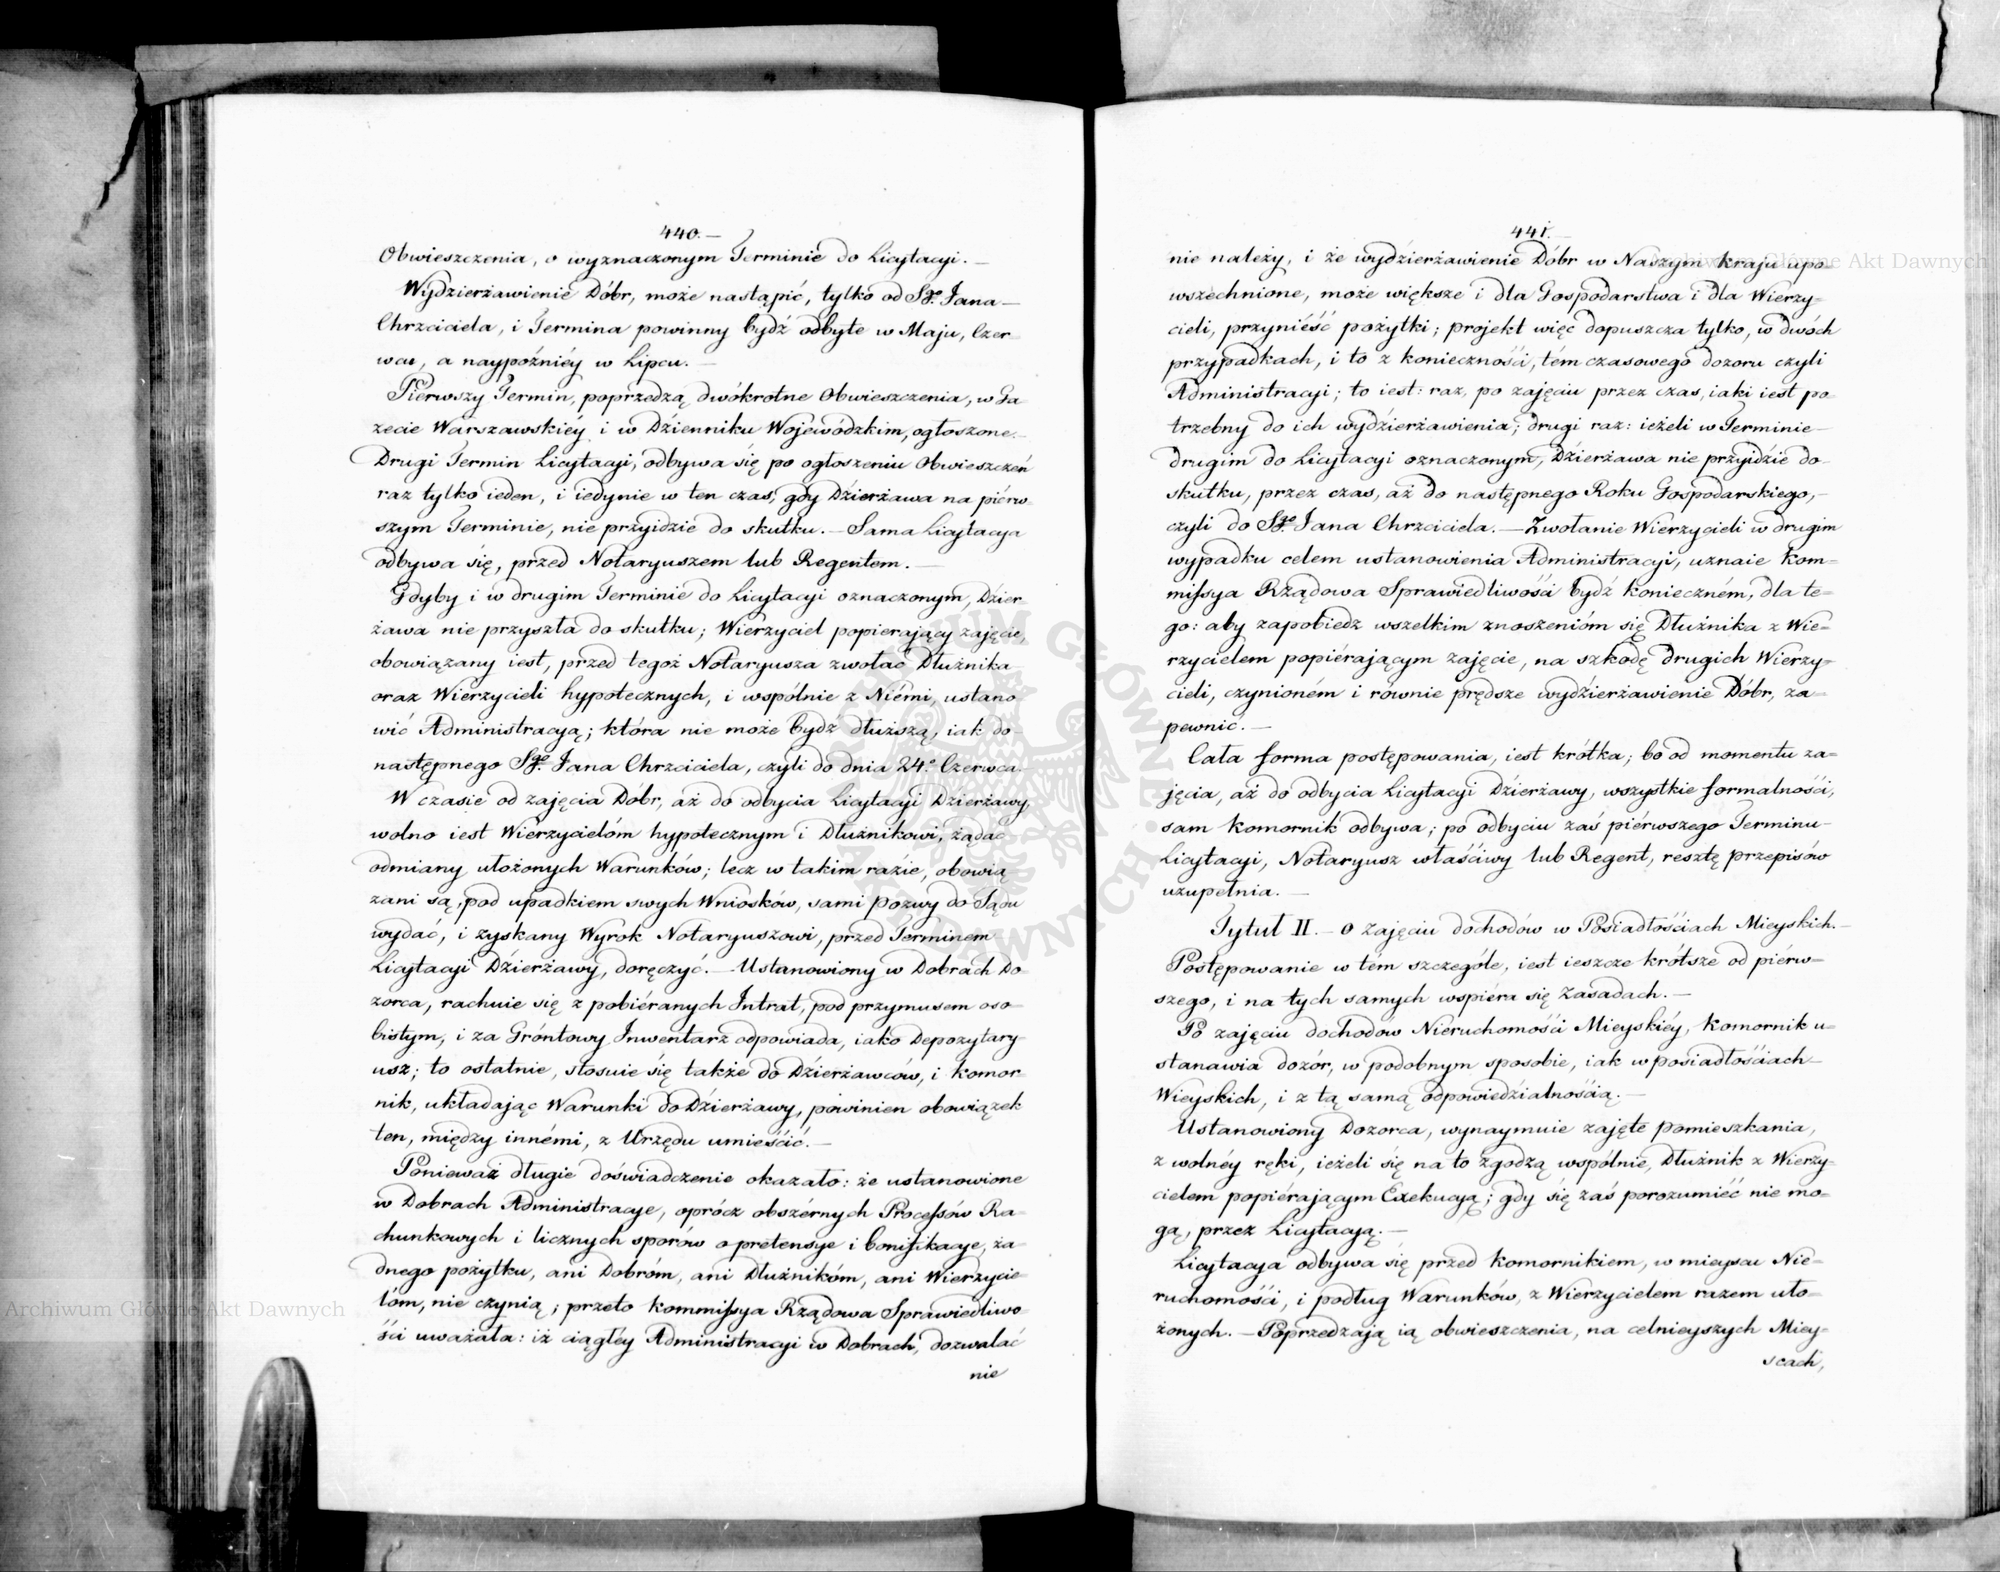 440.—
Obwieszczenia, o wyznaczonym Terminie do Licytacyi.—
Wydzierżawienie Dóbr, może nastąpić, tylko od Sgo. Jana—
Chrzciciela, i Termina powinny bydź odbyte w Maju, Czer-
wcu, a naypóźniéy w Lipcu.—
Piérwszy Termin, poprzedzą dwókrotne Obwieszczenia, w Ga
zecie Warszawskiéy i w Dzienniku Wojewódzkim, ogłoszone.—
Drugi Termin Licytacyi, odbywa się po ogłoszeniu Obwieszczeń
raz tylko ieden, i iedynie w ten czas, gdy Dzierżawa na piérw-
szym Terminie, nie przyidzie do skutku.— Sama Licytacya
odbywa się, przed Notaryuszem lub Regentem.—
Gdyby i w drugim Terminie do Licytacyi oznaczonym, Dzier
żawa nie przyszła do skutku; Wierzyciel popierający zajęcie,
obowiązany iest, przed tegoż Notaryusza zwołać Dłużnika
oraz Wierzycieli hypotecznych, i wspólnie z Niémi, ustano
wić Administracyą; która nie może bydź dłuższą, iak do-
następnego Sgo. Jana Chrzciciela, czyli do dnia 24.o Czerwca.
W czasie od zajęcia Dóbr, aż do odbycia Licytacyi Dzierżawy,
wolno iest Wierzycielóm hypotecznym i Dłużnikowi, żądać
odmiany ułożonych Warunków; lecz w takim razie, obowią
zani są, pod upadkiem swych Wniosków, sami pozwy do Sądu
wydać, i zyskany Wyrok Notaryuszowi, przed Terminem
Licytacyi Dzierżawy, doręczyć.— Ustanowiony w Dobrach Do-
zorca, rachuie się z pobiéranych Intrat, pod przymusem oso-
bistym, i za Gróntowy Inwentarz odpowiada, iako Depozytary-
usz; to ostatnie, stosuie się także do Dzierżawców, i Komor-
nik, układając Warunki do Dzierżawy, powinien obowiązek
ten, między innémi, z Urzędu umieścić.—
Ponieważ długie doświadczenie okazało: że ustanowione
w Dobrach Administracye, oprócz obszérnych Processów Ra-
chunkowych i licznych sporów o pretensye i bonifikacye, ża-
dnego pożytku, ani Dobróm, ani Dłużnikóm, ani Wierzycie-
lóm, nie czynią; przeto Kommissya Rządowa Sprawiedliwo-
ści uważała: iż ciągłéy Administracyi w Dobrach, dozwalać
nie
441.
nie należy, i że wydzierżawienie Dóbr w Naszym Kraju upo-
wszechnione, może większe i dla Gospodarstwa i dla Wierzy-
cieli, przynieść pożytki; projekt więc dopuszcza tylko, w dwóch
przypadkach, i to z konieczności, tém czasowego dozoru czyli
Administracyi; to iest: raz, po zajęciu przez czas, iaki iest po-
trzebny do ich wydzierżawienia; drugi raz: ieżeli w Terminie—
drugim do Licytacyi oznaczonym, Dzierżawa nie przyidzie do-
skutku, przez czas, aż do następnego Roku Gospodarskiego,—
czyli do Sgo. Jana Chrzciciela.— Zwołanie Wierzycieli w drugim
wypadku celem ustanowienia Administracyi, uznaie Kom-
missya Rządowa Sprawiedliwości bydź konieczném, dla te-
go: aby zapobiedz wszelkim znoszenióm się Dłużnika z Wie-
rzycielem popiérającym zajęcie, na szkodę drugich Wierzy-
cieli, czynioném i równie prędsze wydzierżawienie Dóbr, za-
pewnić.—
Cała forma postępowania, iest krótka; bo od momentu za-
jęcia, aż do odbycia Licytacyi Dzierżawy, wszystkie formalności,
sam Komornik odbywa; po odbyciu zaś piérwszego Terminu—
Licytacyi, Notaryusz właściwy lub Regent, resztę przepisów
uzupełnia.—
Tytuł II.— O zajęciu dochodów w Posiadłościach Mieyskich.—
Postępowanie w tém szczególe, iest ieszcze krótsze od piérw-
szego, i na tych samych wspiéra się Zasadach.—
Po zajęciu dochodow Nieruchomości Mieyskiéy, Komornik u-
stanawia dozór, w podobnym sposobie, iak w posiadłościach—
Wieyskich, i z tą samą odpowiedzialnością.—
Ustanowiony Dozorca, wynaymuie zajęte pomieszkania,
z wolnéy ręki, ieżeli się na to zgodzą wspólnie, Dłużnik z Wierzy-
cielem popiérającym Exekucyą; gdy się zaś porozumieć nie mo-
gą, przez Licytacyą.—
Licytacya odbywa się przed Komornikiem, w mieyscu Nie-
ruchomości, i podług Warunków, z Wierzycielem razem uło-
żonych.— Poprzedzają ią obwieszczenia, na celnieyszych Miey-
scach,
Archiwum Główne Akt Dawnych
Archiwum Główne Akt Dawnych